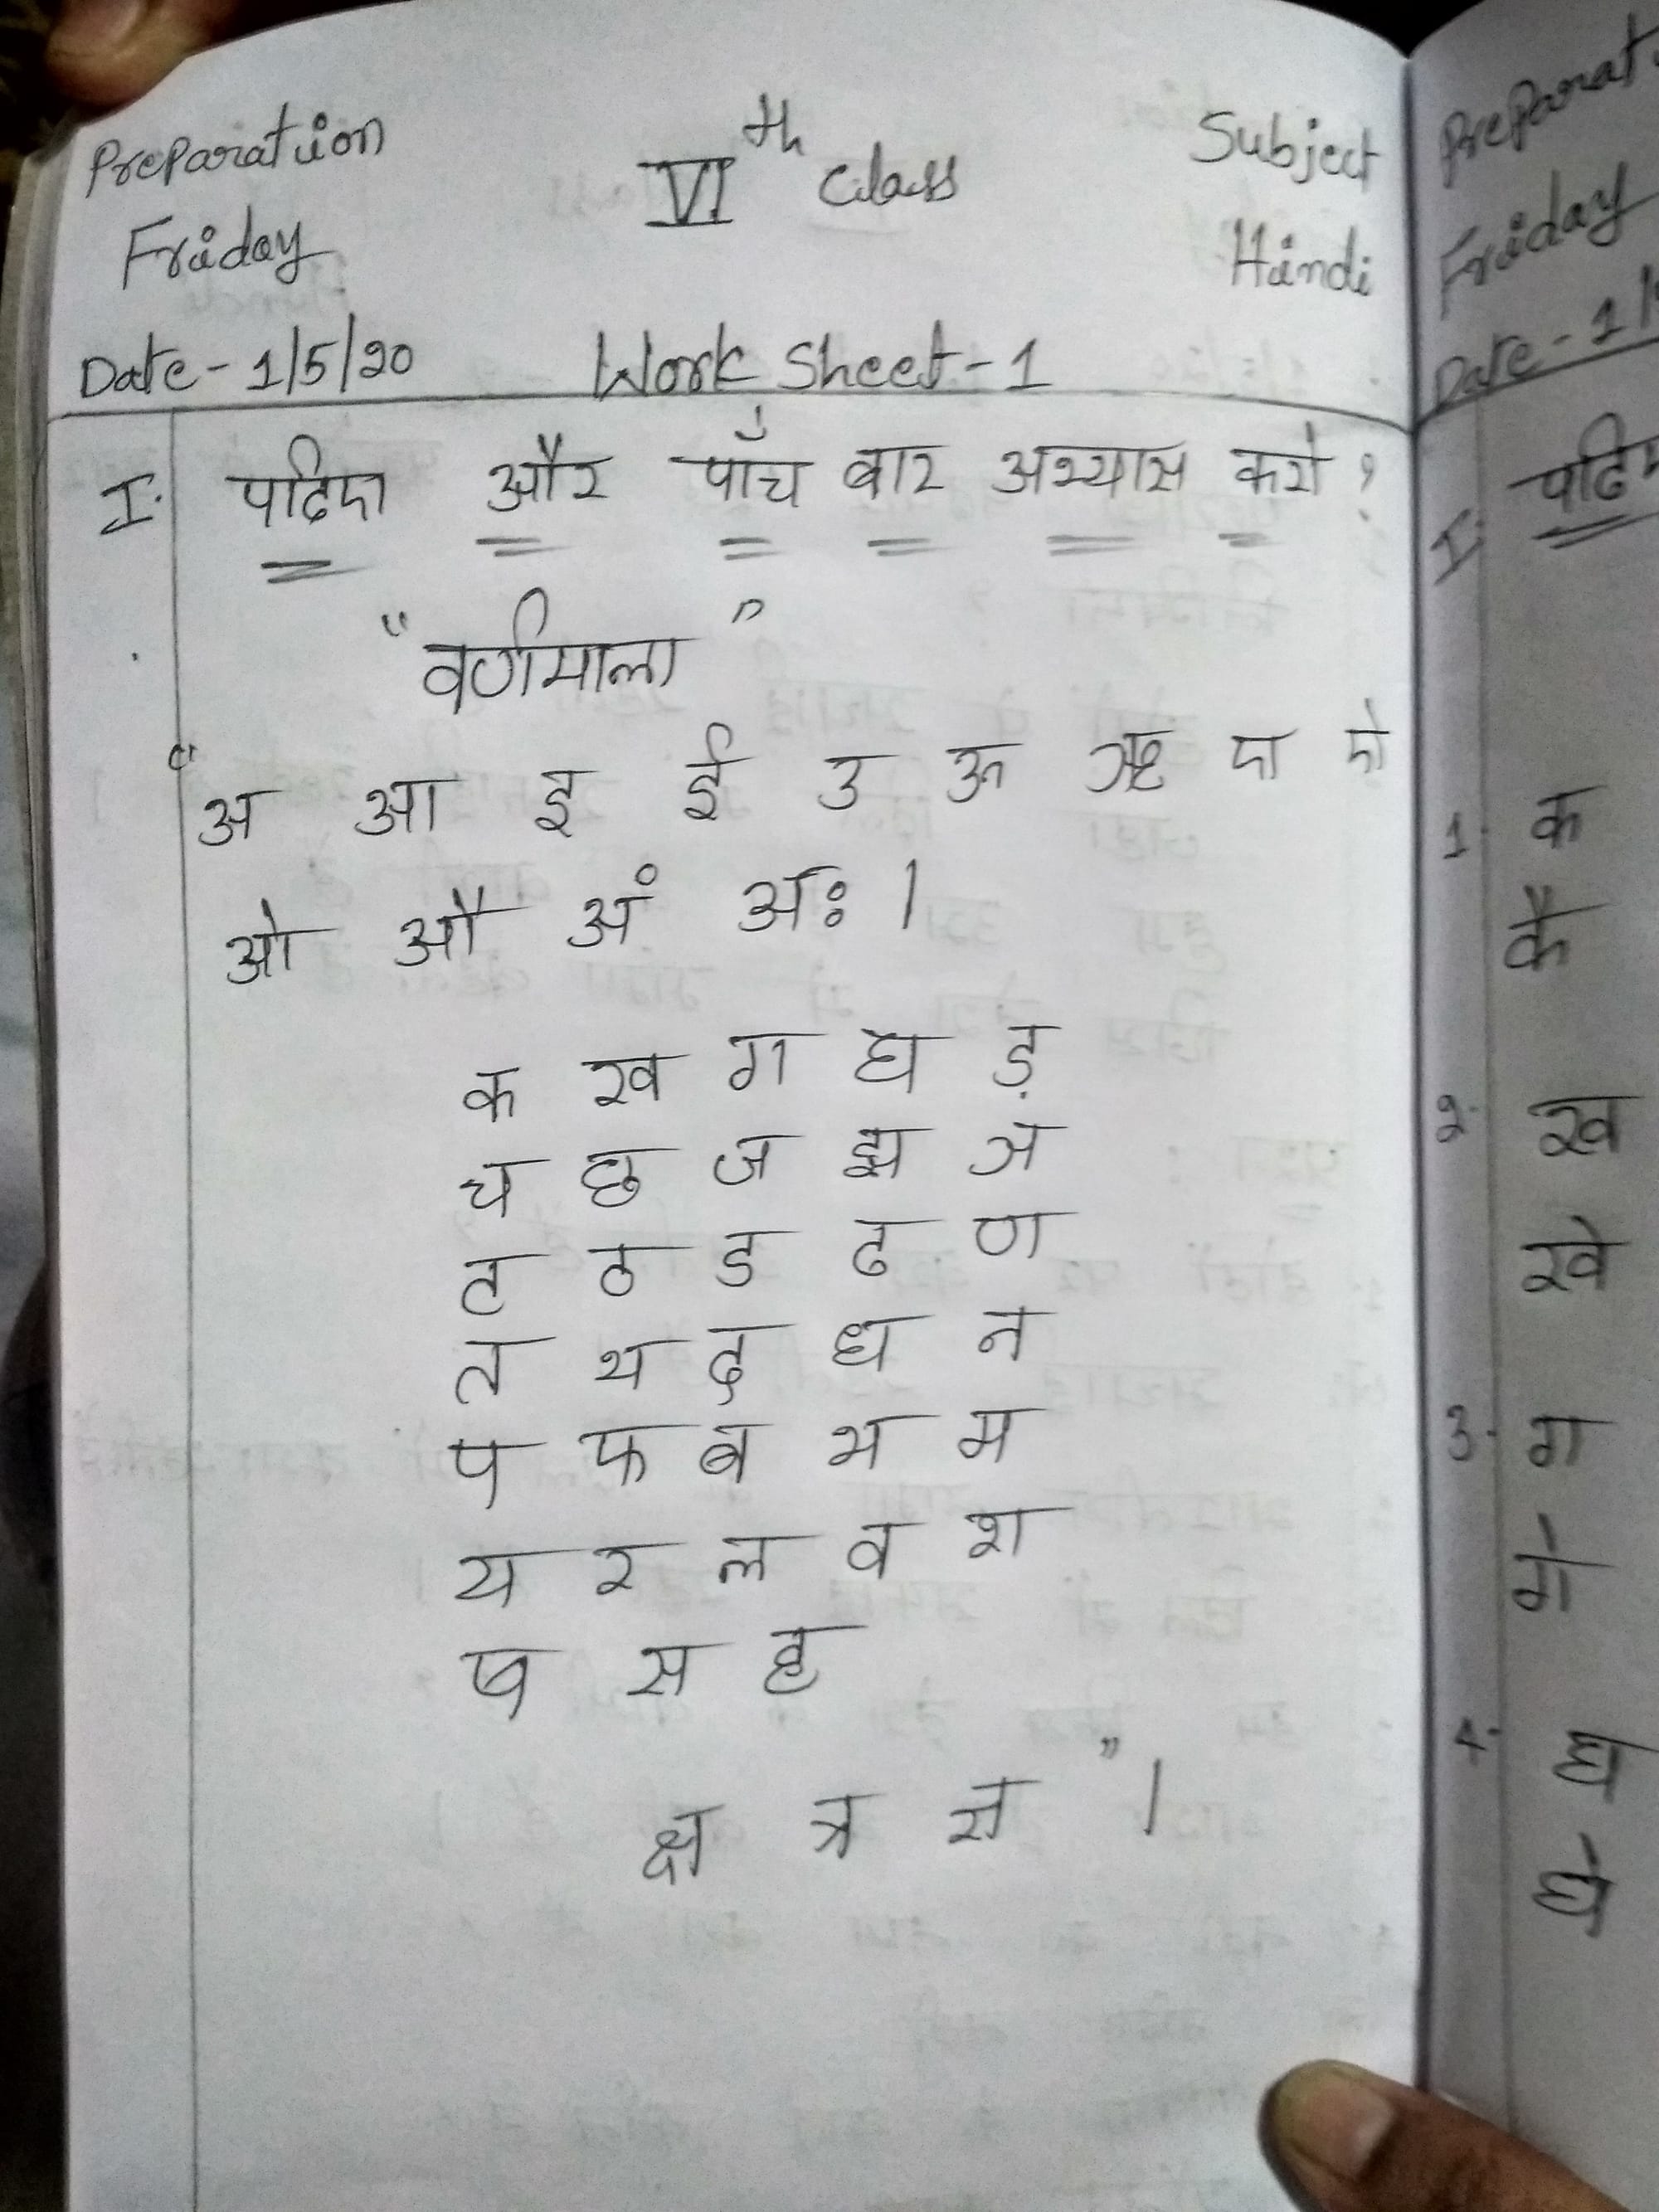 Preparation VIth Class Subject
Friday Hindi
Date - 1/5/20 Work Sheet - 1
I. पढिए और पाँच बार अभ्यास करो ?
"वर्णमाला"
"अ आ इ ई उ ऊ ऋ ए ऐ
ओ औ अं अः ।
क ख ग घ ड़
च छ ज झ ञ
ट ठ ड ढ ण
त थ द ध न
प फ ब भ म
य र ल व श
ष स ह
क्ष त्र ज्ञ " ।
Friday
I.
1. क
कै
2. ख
खे
3. ग
गे
4. घ
घे